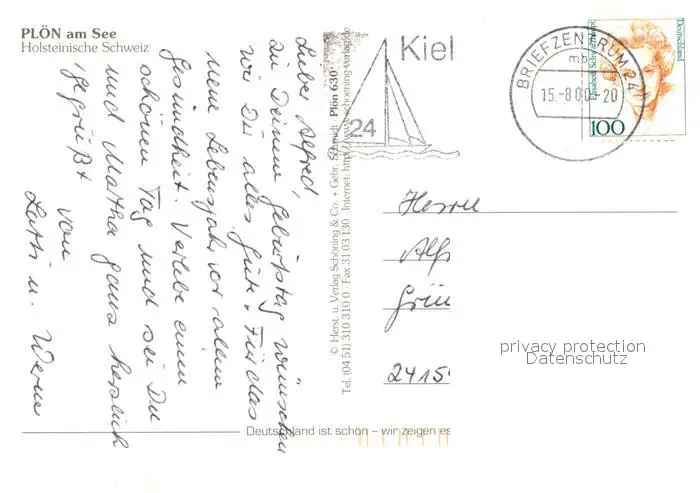 PLÖN am See
Holsteinische Schweiz
Liebe Alfred,
zu Deinem Geburtstag wünschen
wir Dir alles Gute. Für das
neue Lebensjahr vor allem
Gesundheit. Verlebe einen
schönen Tag und sei Du
und Martha ganz herzlich
gegrüßt
von
u. Werner
© Herst. u. Verlag Schöning & Co. + Gebr. Schmidt
Plön 630
Tel. (04 51) 310 310 0 · Fax 31 03 130 · Internet: http://www.schoening-verlag.de
Kiel
24
BRIEFZENTRUM 24
mb
15.-8.00.-20
Deutschland
100
Herrn
Alf
Grün
2415
privacy protection
Datenschutz
Deutschland ist schön – wir zeigen es